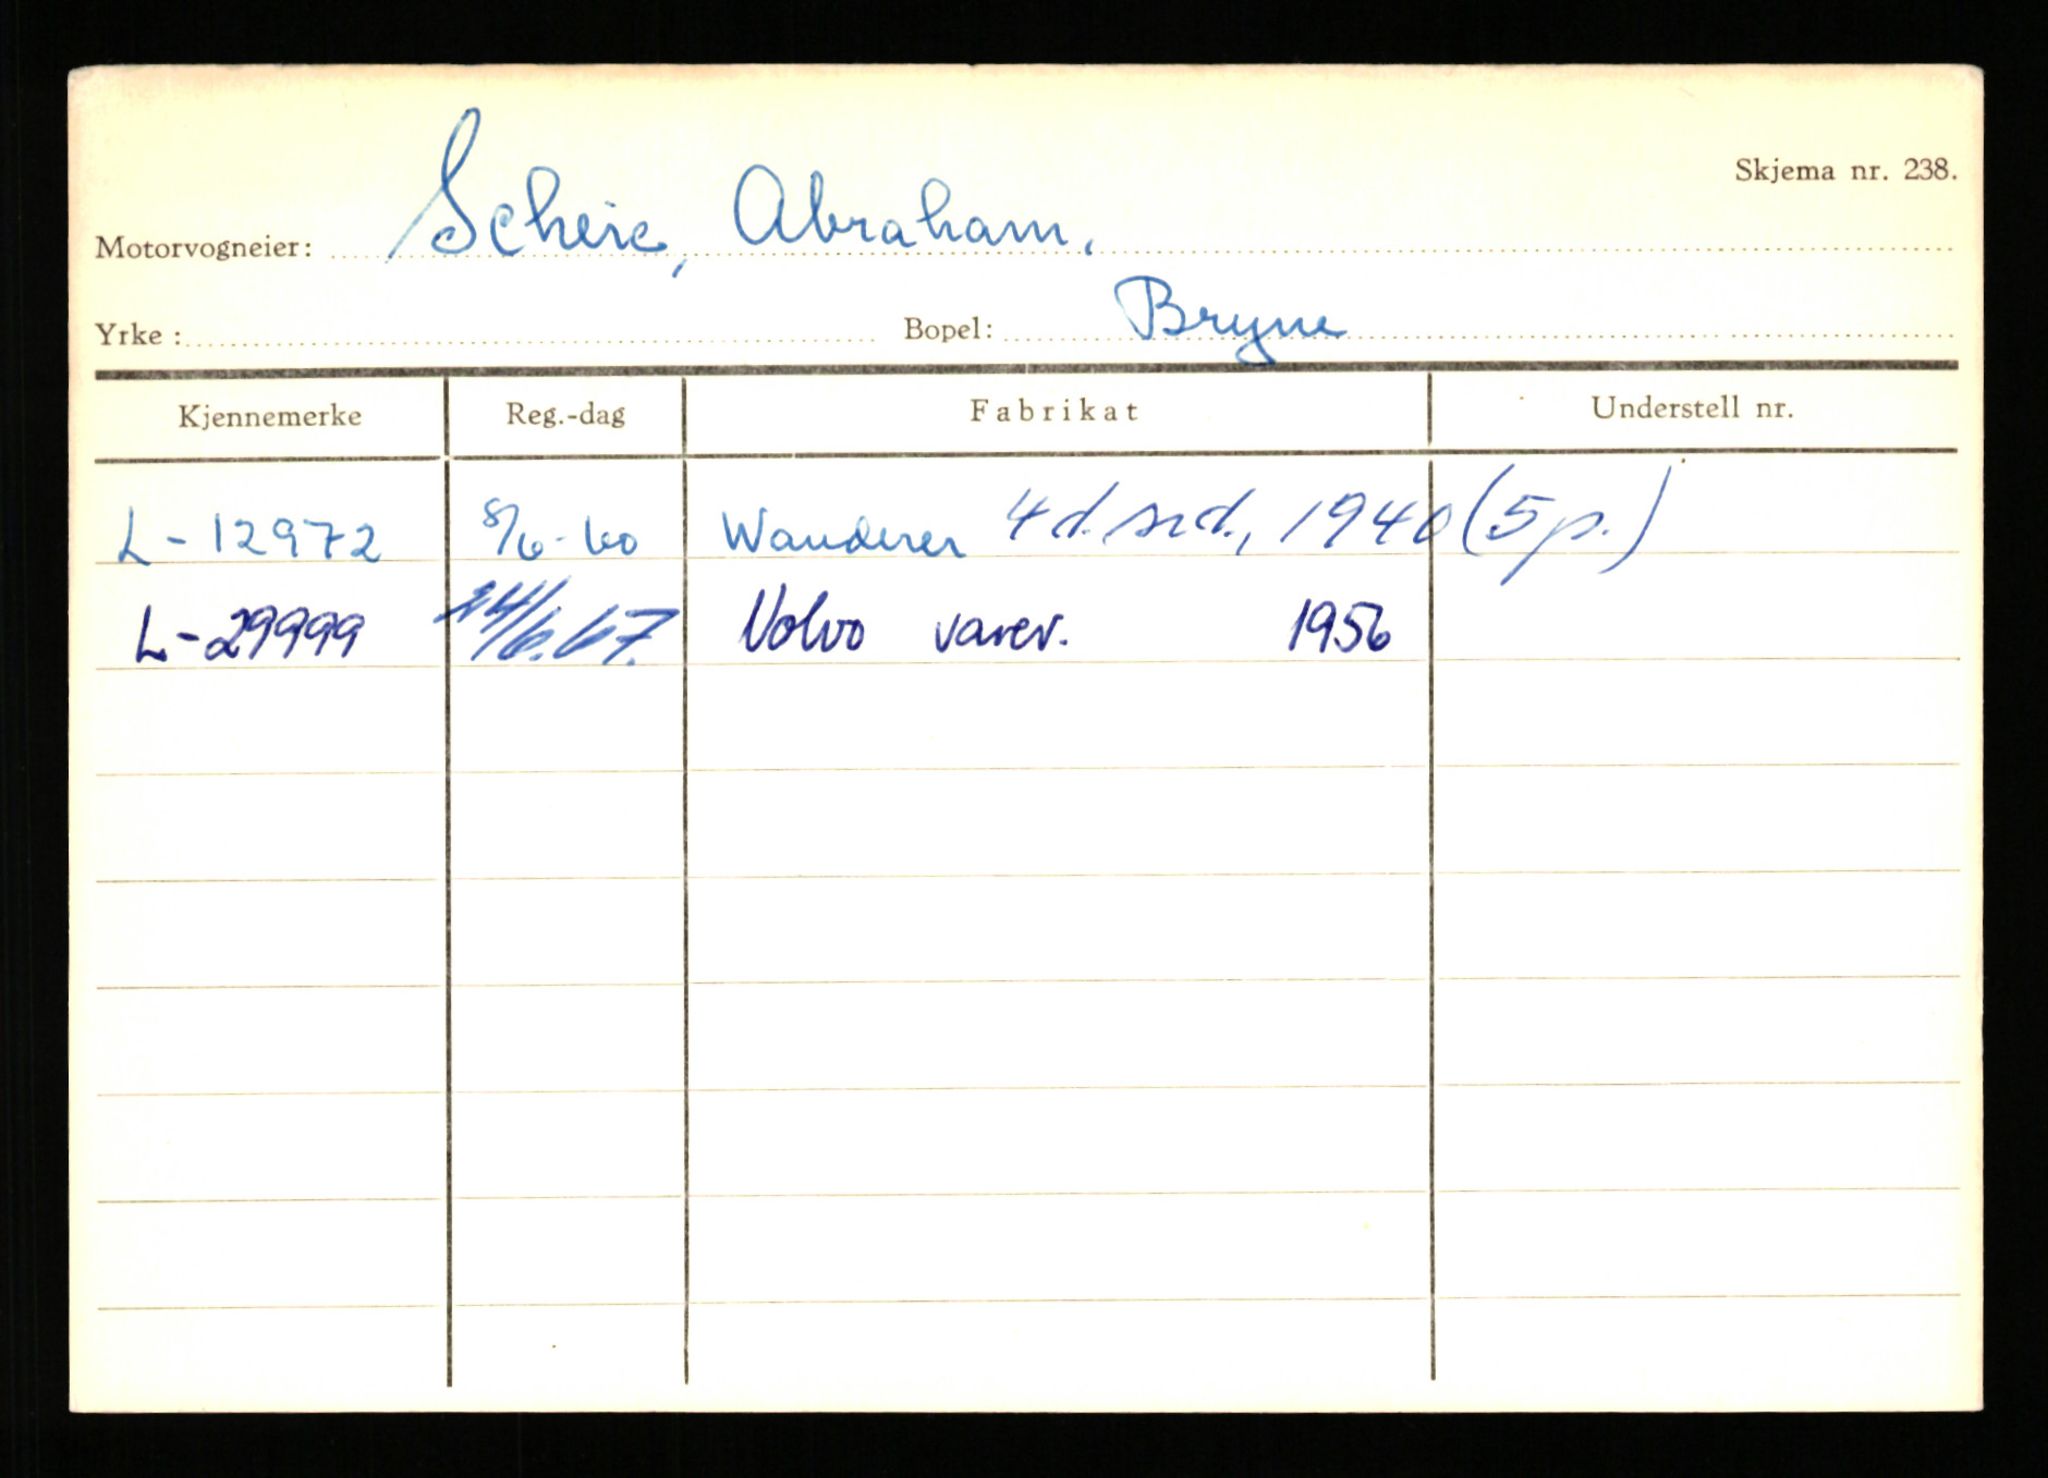 Skjema nr. 238.
Motorvogneier: Scheie, Abraham.
Yrke: Bopel: Bryne
Kjennemerke Reg.-dag Fabrikat Understell nr.
L-12972 8/6-60 Wanderer 4 d. sed., 1940 (5 p.)
L-29999 24/6.67. Volvo varev. 1956